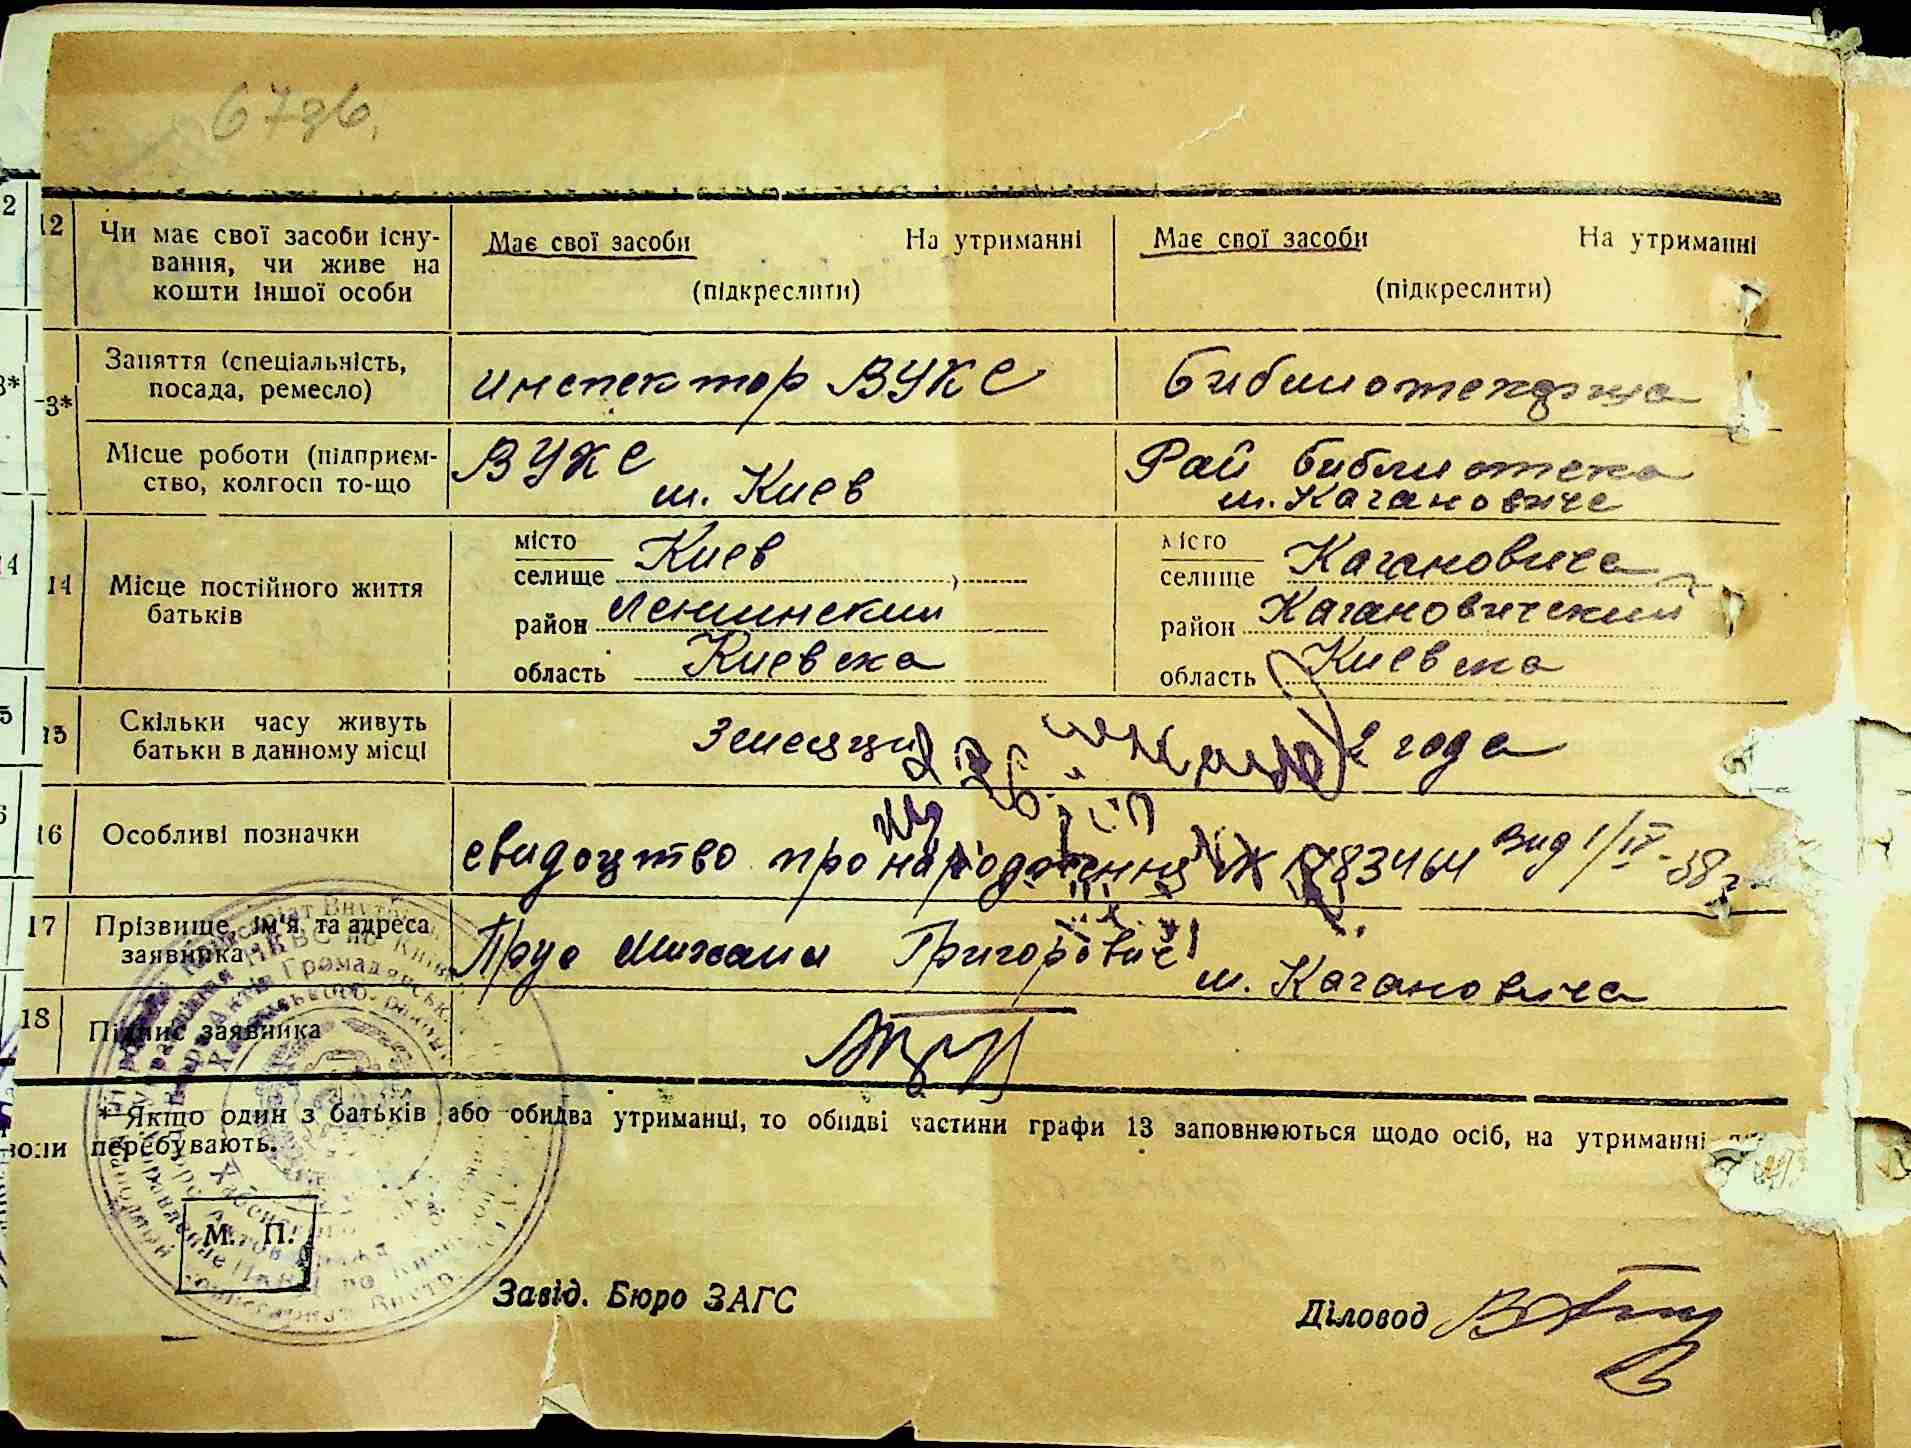 67зв.
12 Чи має свої засоби існу-
вання, чи живе на
кошти іншої особи
Має свої засоби На утриманні
(підкреслити)
Має свої засоби На утриманні
(підкреслити)
3* Заняття (спеціальність,
посада, ремесло)
инспектор ВУКС
Библиотекарша
Місце роботи (підприєм-
ство, колгосп то-що
ВУКС
м. Киев
Рай библиотека
м. Кагановиче
14 Місце постійного життя
батьків
місто Киев
селище
район Ленинский
область Киевска
місто Кагановича
селище
район Кагановический
область Киевска
15 Скільки часу живуть
батьки в данному місці
3 месяци
2 года
16 Особливі позначки
свидоцтво про народження
Вид 1/IV-38 г
17 Прізвище, ім'я та адреса
заявника
Прус Михаил Григорович
м. Кагановича
18 Підпис заявника
* Якщо один з батьків або обидва утриманці, то обидві частини графи 13 заповнюються щодо осіб, на утриманні
перебувають.
М. П.
Завід. Бюро ЗАГС
Діловод